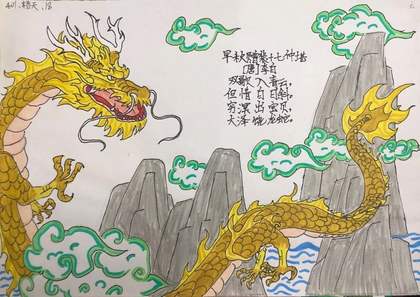 早秋赠裴十七仲堪
[唐]李白
双歌入青云,
但惜白日斜。
穷溟出宝贝,
大泽饶龙蛇。